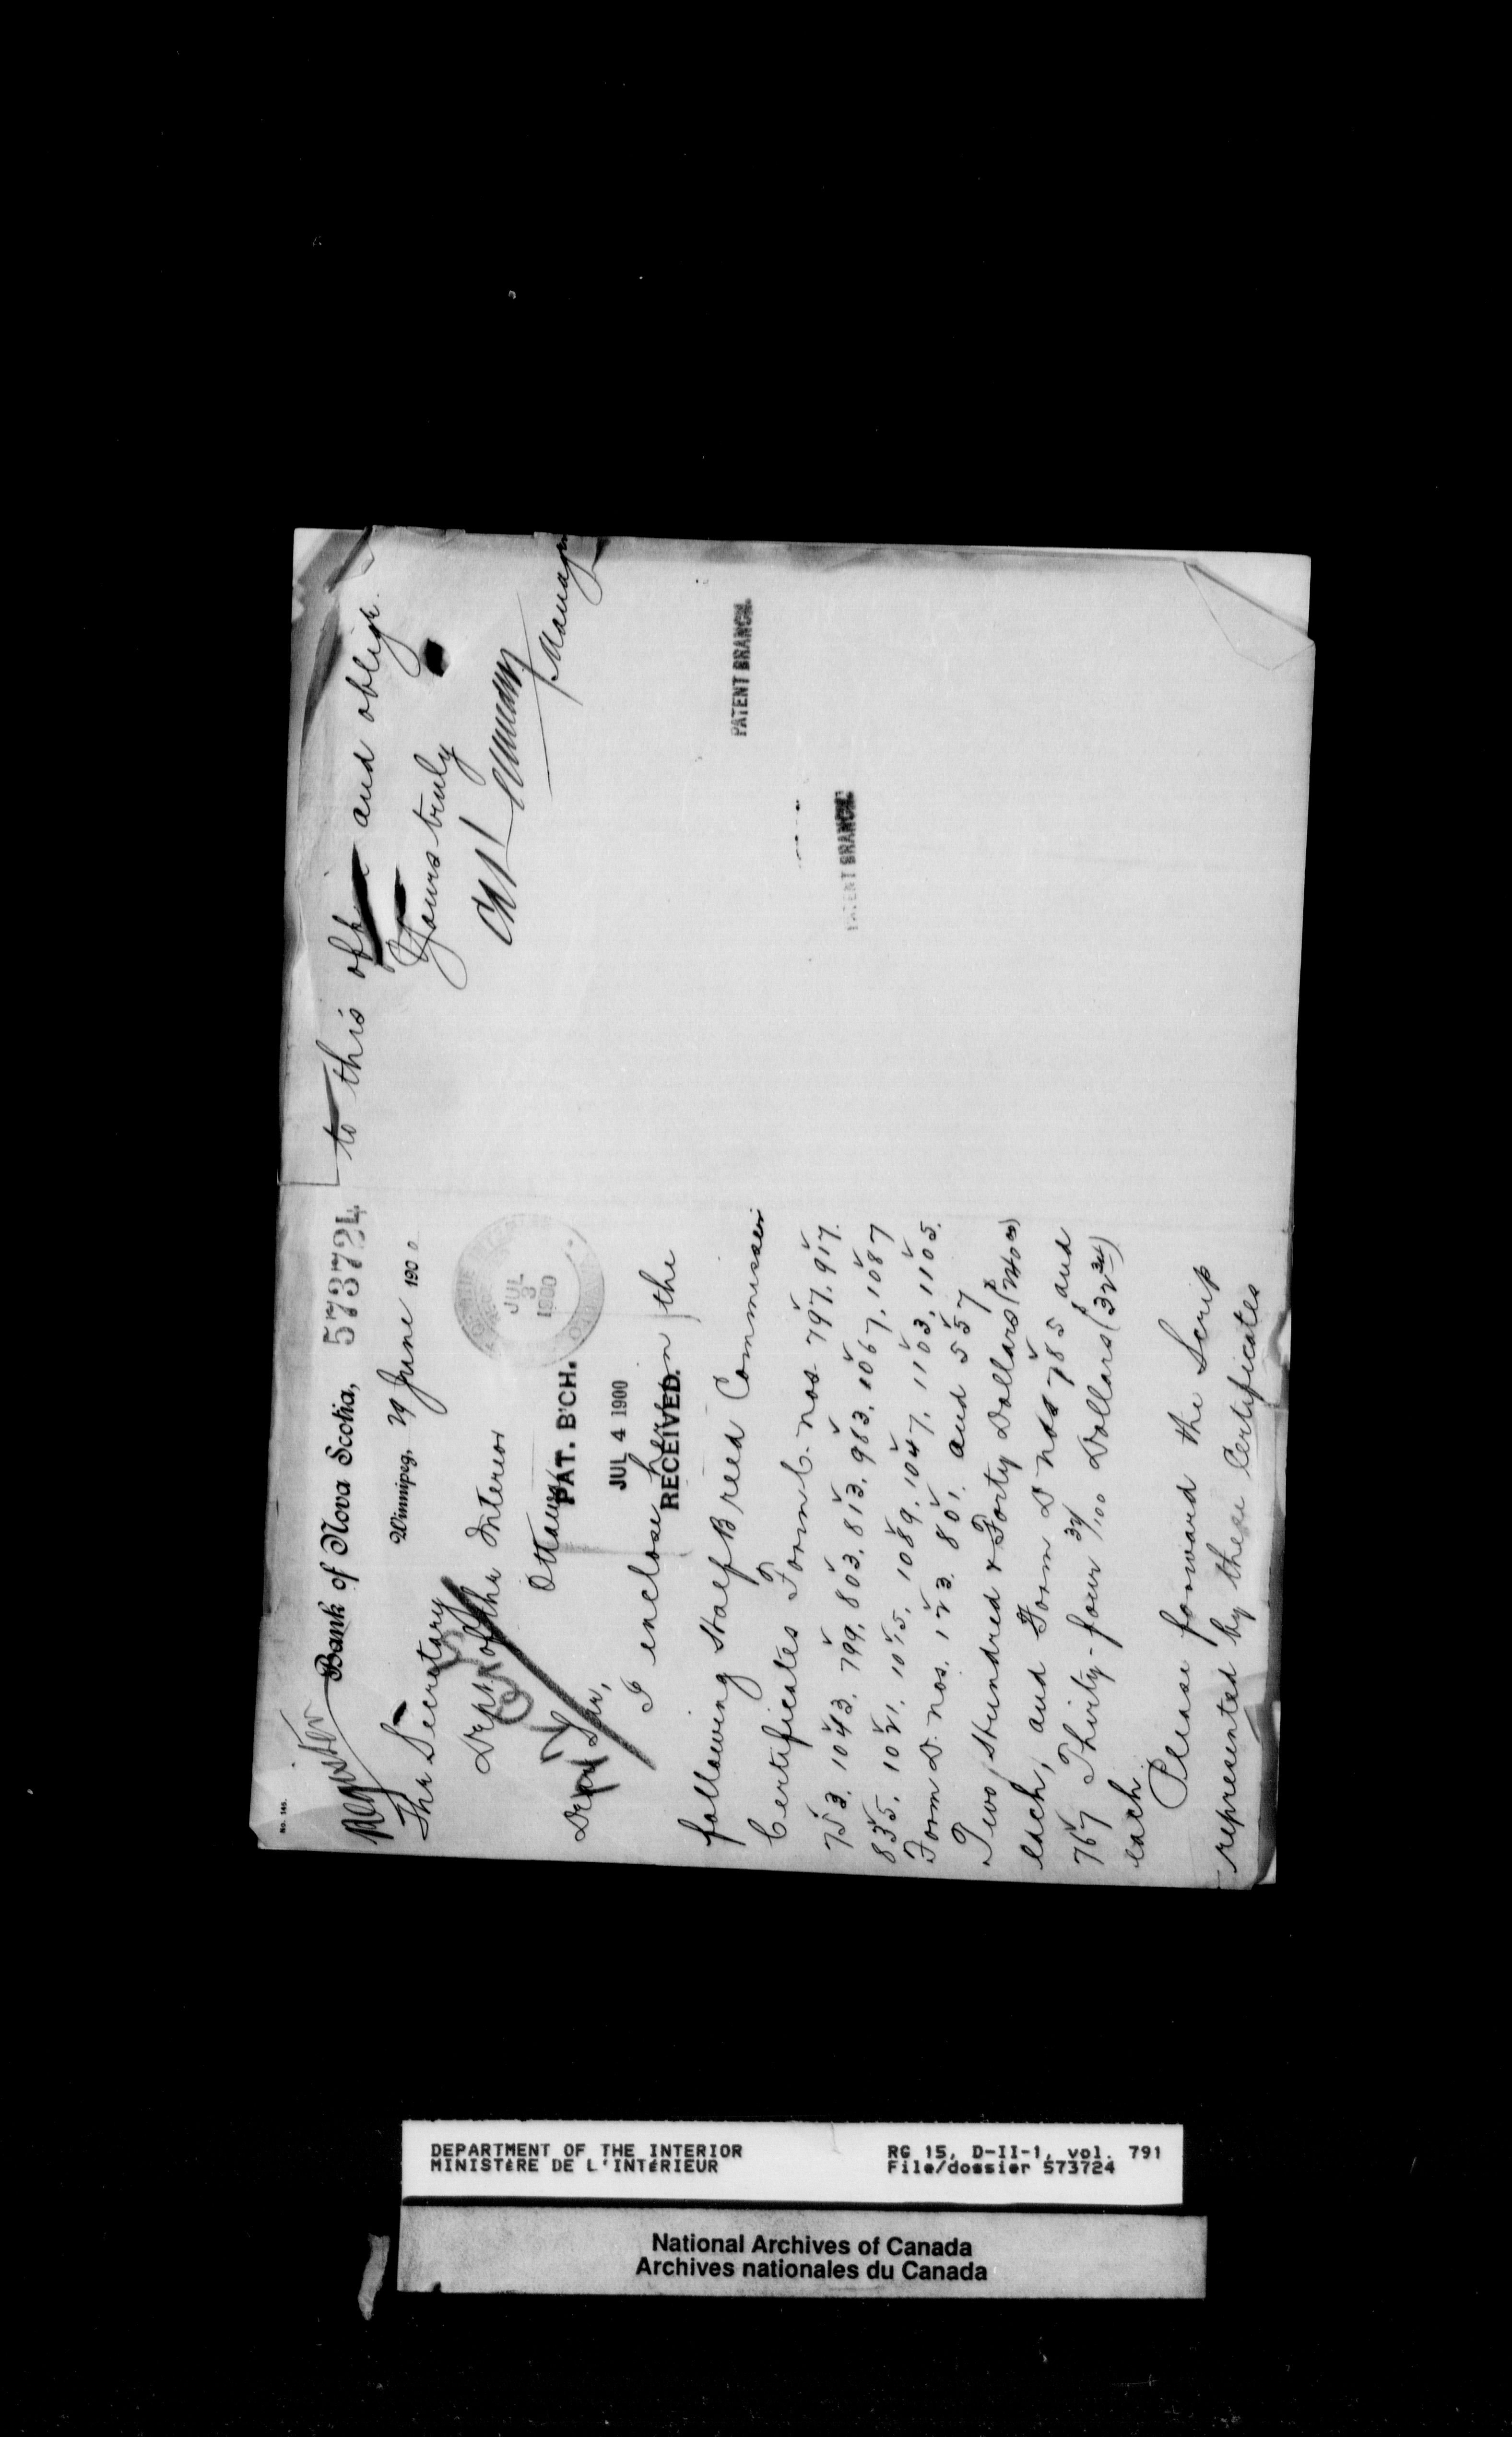 No. 145.
Register
Bank of Nova Scotia, 573724
Winnipeg, 29 June 1900
The Secretary
Dept. of the Interior
Ottawa
JUL
3
1900
PAT. B'CH.
JUL 4 1900
RECEIVED.
Dear Sir,
I enclose herein the
following Half Breed Commission
Certificates Form C. nos. 797, 917.
753. 1043. 799. 803. 813. 963. 1067. 1087
835. 1021. 1015. 1089. 1047. 1103. 1105.
Form D. nos. 123. 801. and 557
Two Hundred & Forty Dollars ($240 00)
each, and Form D nos 785 and
767 Thirty-four 34/100 Dollars
each.
Please forward the Scrip
represented by these Certificates
to this office and oblige.
Yours truly
Manager
PATENT BRANCH.
PATENT BRANCH.
DEPARTMENT OF THE INTERIOR
MINISTÈRE DE L'INTÉRIEUR
RG 15, D-II-1, vol. 791
File/dossier 573724
National Archives of Canada
Archives nationales du Canada